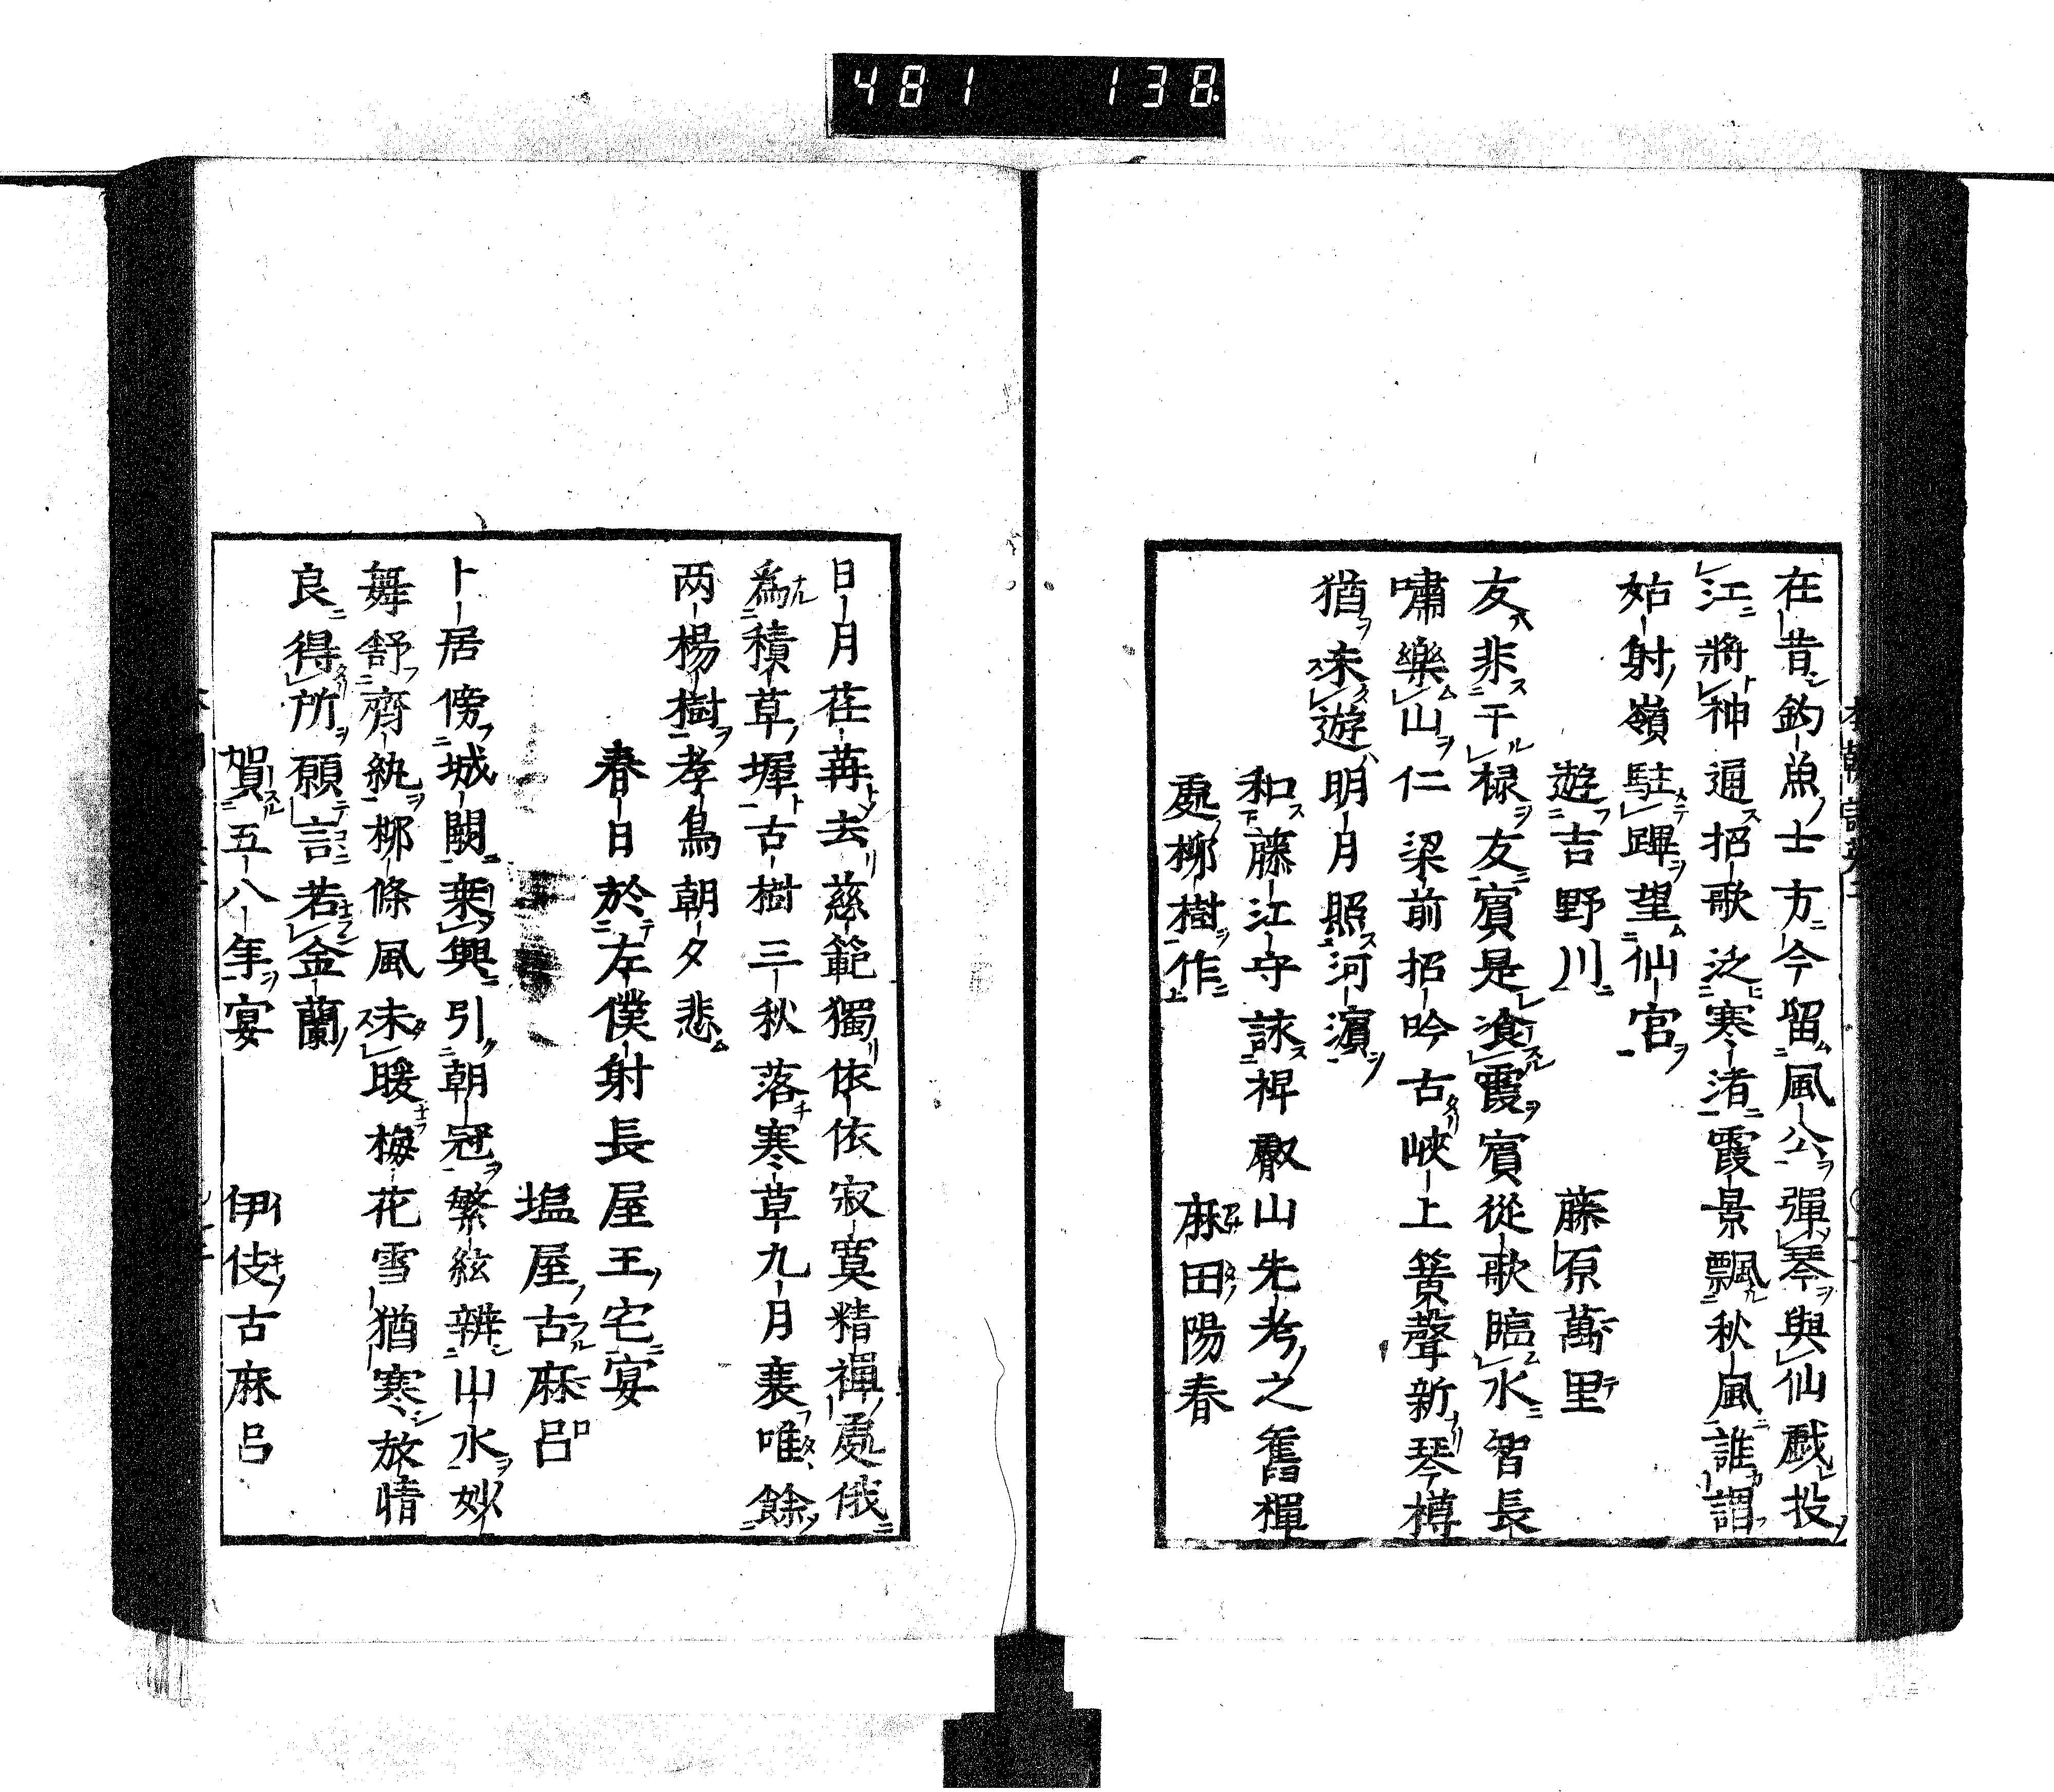 481 138
在昔釣魚士方今留風公彈琴與仙戯投
江將神通招歌泛寒渚霞景飄秋風誰謂
姑射嶺駐蹕望仙宮
遊吉野川 藤原萬里
友非干禄友賓是飡霞賓從歌臨水智長
嘯樂山仁梁前招吟古峽上簧聲新琴樽
猶未遊明月照河濱
和藤江守詠裨叡山先考之舊禪
處柳樹作 麻田陽春
日月荏苒去慈範獨依依寂寞精禪處俄
爲積草墀古樹三秋落寒草九月衰唯餘
两楊樹孝鳥朝夕悲
春日於左僕射長屋王宅宴
塩屋古麻呂
卜居傍城闕乗興引朝冠繁絃辨山水妙
舞舒齊紈柳條風未暖梅花雪猶寒放情
良得所願言若金蘭
賀五八年宴 伊伎古麻呂